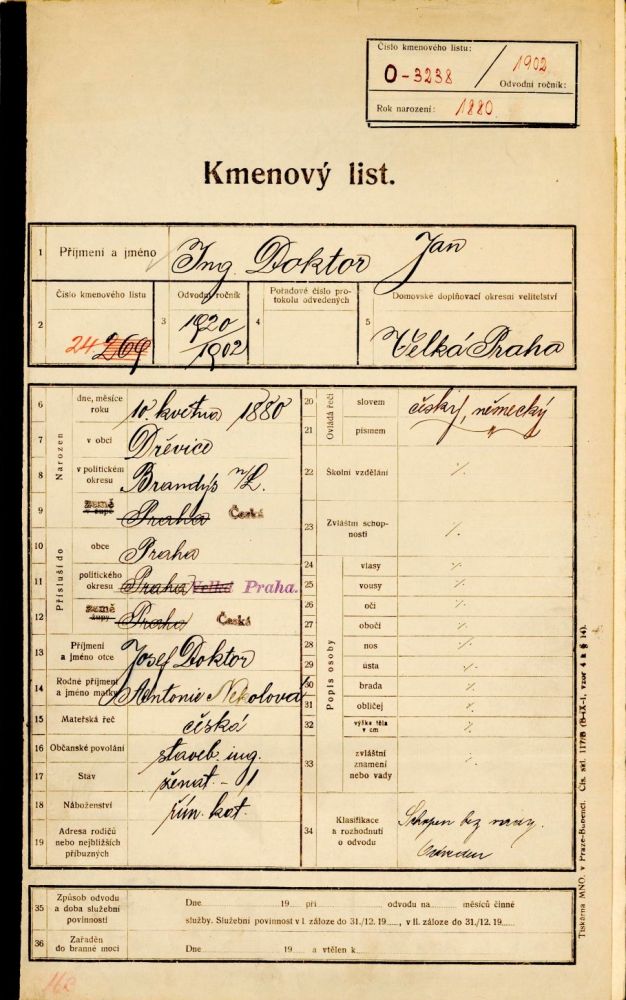 Číslo kmenového listu:
O-3238 / 1902
Odvodní ročník:
Rok narození: 1880
Kmenový list.
1 Příjmení a jméno Ing. Doktor Jan
Číslo kmenového listu Odvodní ročník Pořadové číslo pro-
tokolu odvedených Domovské doplňovací okresní velitelství
2 24. 269 3 1920/1902 4 5 Velká Praha
Narozen
6 dne, měsíce
roku 10. května 1880
7 v obci Dřevice
8 v politickém
okresu Brandýs n/L.
9 země
v župě Praha Česká
Přísluší do
10 obce Praha
11 politického
okresu Praha Velká Praha.
12 země
župy Praha Česká
13 Příjmení
a jméno otce Josef Doktor
14 Rodné příjmení
a jméno matky Antonie Nekolová
15 Mateřská řeč česká
16 Občanské povolání staveb. ing.
17 Stav ženat. – 1
18 Náboženství řím. kat.
19 Adresa rodičů
nebo nejbližších
příbuzných
Ovládá řeči
20 slovem český, německý
21 písmem "
22 Školní vzdělání ⁒
23 Zvláštní schop-
nosti ⁒
Popis osoby
24 vlasy ⁒
25 vousy ⁒
26 oči ⁒
27 obočí ⁒
28 nos ⁒
29 ústa ⁒
30 brada ⁒
31 obličej ⁒
32 výška těla
v cm ⁒
33 zvláštní
znamení
nebo vady ⁒
34 Klasifikace
a rozhodnutí
o odvodu Schopen bez vady.
Odveden
35 Způsob odvodu
a doba služební
povinnosti Dne 19 při odvodu na měsíců činné
služby. Služební povinnost v I. záloze do 31./12. 19, v II. záloze do 31./12. 19
36 Zařaděn
do branné moci Dne 19 a vtělen k
Tiskárna MNO. v Praze-Bubenči. Čís. skl. 117/B (B-IX-1, vzor 4 k § 14).